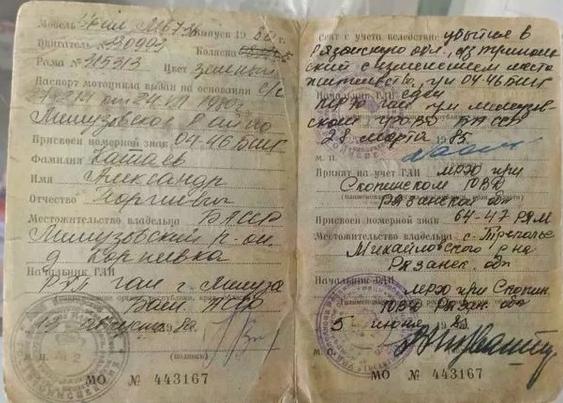 Модель Урал М6736 выпуск 19 80 г.
Двигатель № 30991 Коляска
Рама № 215313 Цвет зеленый
Паспорт мотоцикла выдан на основании с/с
от 24. VII 1980г.
Мишузовское Райпо
Присвоен номерной знак 04-46 БШГ
Фамилия Катаев
Имя Александр
Отчество Георгиевич
Местожительство владельца БАССР
р-он
д. Корнеевка
Начальник ГАИ
РЭП ГАИ г.
Баш. АССР
19 августа 80
М. П. (подпись)
МО № 443167
Снят с учета вследствие убытия в
Рязанскую обл.,
ский с изменением места
жительства, г/н 04-46 БШГ
Начальник ГАИ сдан
МРЭО ГАИ при
ском ГРОВД БАССР
28 марта 1983
М. П.
Принят на учет ГАИ МРЭО при
Скопинском РОВД
Рязанской обл
Присвоен номерной знак 64-47 РЯМ
Местожительство владельца с.
Михайловского р-на
Рязанс. обл
Начальник ГАИ МРЭО при Скопин.
РОВД Рязан. обл
5 июня 1983
М. П. (подпись)
МО № 443167